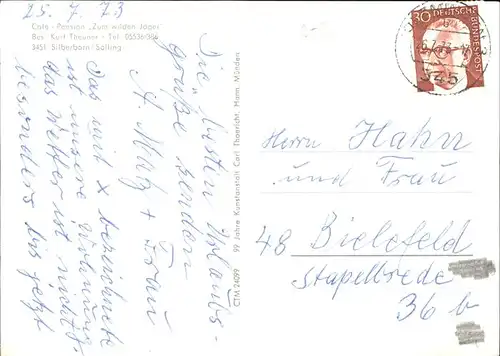 25.7.73
Café - Pension „Zum wilden Jäger"
Bes. Kurt Theuner - Tel. 05536/364
3451 Silberborn / Solling
Die besten Urlaubs-
grüße senden
A. Merz + Frau
Das mit x bezeichnete
ist unsere Wohnung
das Wetter ist nicht
besonders bis jetzt
99 Jahre Kunstanstalt Carl Thoericht, Hann. Münden
CTM 24099
30
DEUTSCHE BUNDESPOST
345
Herrn Hahn
und Frau
48 Bielefeld
Stapelbrede
36 b